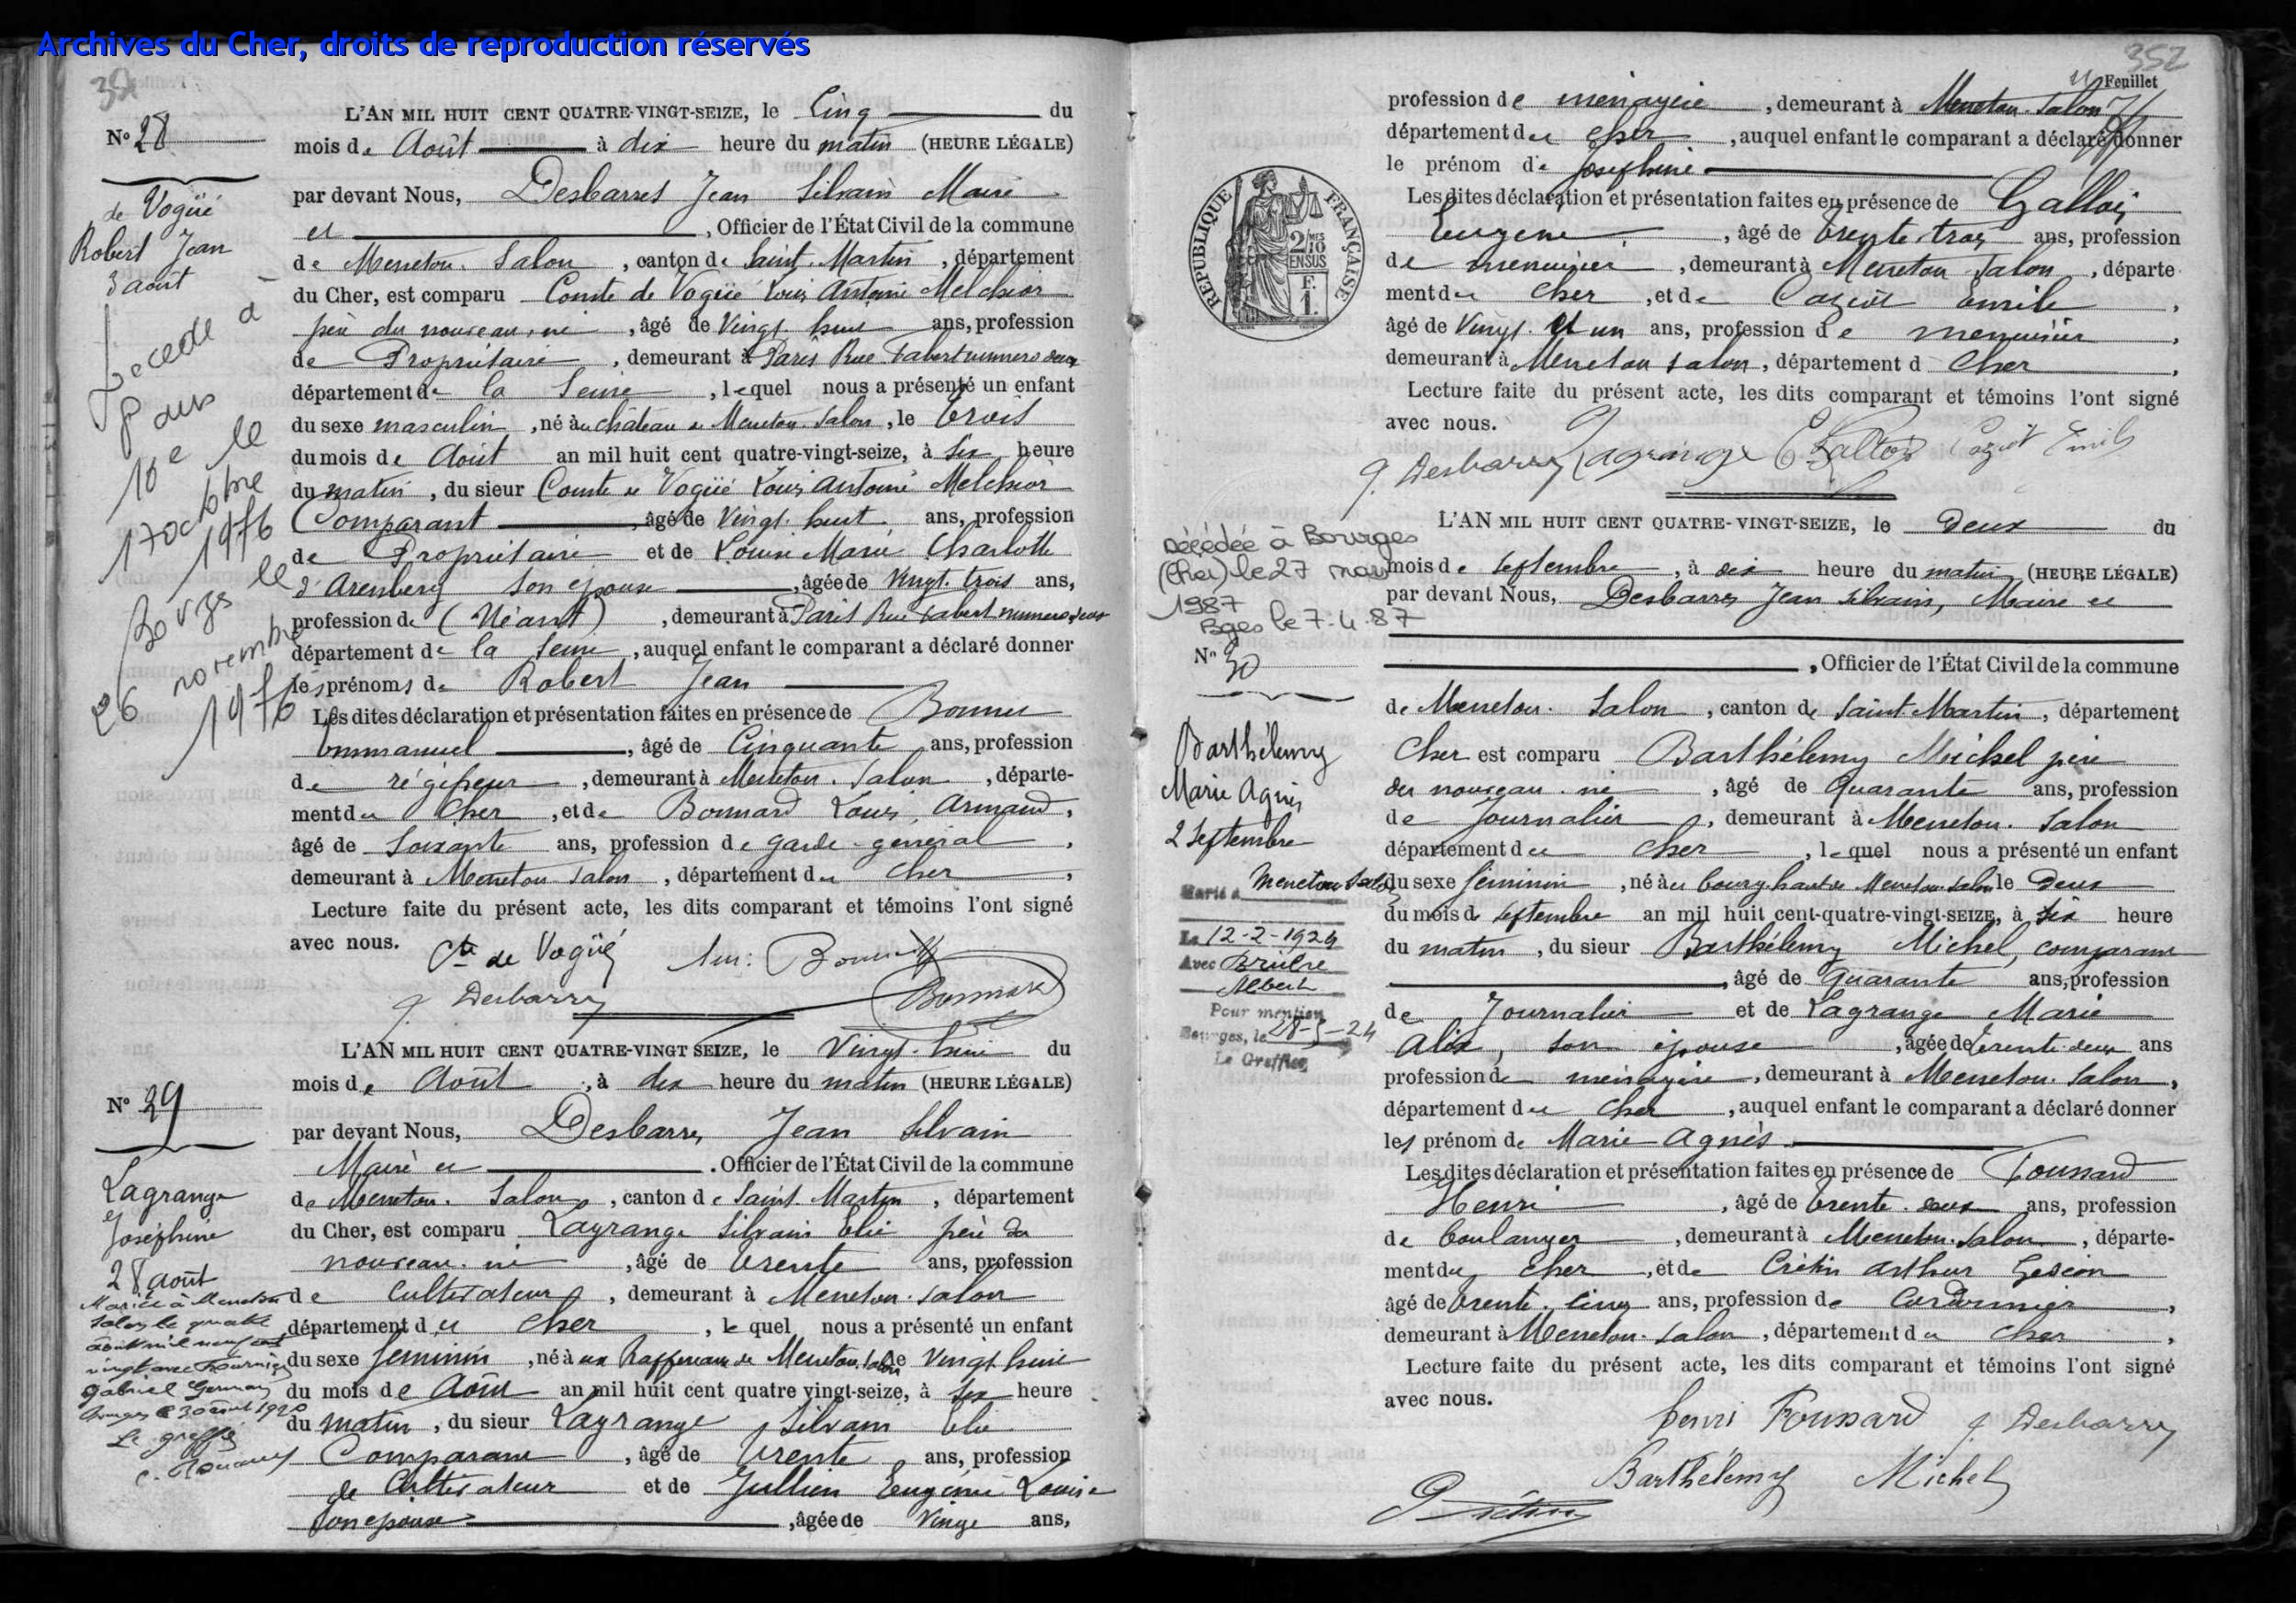 Archives du Cher, droits de reproduction réservés
N° 28
de Vogüé
Robert Jean
3 août
Décédé à
Paris
16e le
17 octobre
1976
Bourges le
26 novembre
1976
L'AN MIL HUIT CENT QUATRE-VINGT-SEIZE, le Cinq du
mois de Août à dix heure du matin (HEURE LÉGALE)
par devant Nous, Desbarres Jean Silvain Maire
et , Officier de l'État Civil de la commune
de Menetou-Salon, canton de Saint-Martin, département
du Cher, est comparu Comte de Vogüé Louis Antoine Melchior
père du nouveau-né, âgé de Vingt-huit ans, profession
de Propriétaire, demeurant à Paris Rue Fabert numéro deux
département de la Seine, lequel nous a présenté un enfant
du sexe masculin, né au château de Menetou-Salon, le trois
du mois de Août an mil huit cent quatre-vingt-seize, à six heure
du matin, du sieur Comte de Vogüé Louis Antoine Melchior
Comparant , âgé de Vingt-huit ans, profession
de Propriétaire et de Louise Marie Charlotte
d'Arenberg son épouse , âgée de Vingt-trois ans,
profession de (Néant), demeurant à Paris Rue Fabert numéro deux
département de la Seine, auquel enfant le comparant a déclaré donner
les prénoms de Robert Jean
Les dites déclaration et présentation faites en présence de Bonnet
Emmanuel , âgé de Cinquante ans, profession
de régisseur, demeurant à Menetou-Salon, départe-
ment du Cher, et de Bonnard Louis Armand,
âgé de Soixante ans, profession de garde-général,
demeurant à Menetou-Salon, département du Cher,
Lecture faite du présent acte, les dits comparant et témoins l'ont signé
avec nous.
Cte de Vogüé Em: Bonnet
J. Desbarres Bonnard
N° 29
Lagrange
Joséphine
28 août
Mariée à Menetou
Salon le quatre
août mil neuf cent
vingt avec Fournier
Gabriel Germain
Bourges le 30 août 1920
Le greffier
L'AN MIL HUIT CENT QUATRE-VINGT SEIZE, le Vingt-huit du
mois de Août, à dix heure du matin (HEURE LÉGALE)
par devant Nous, Desbarres Jean Silvain
Maire et . Officier de l'État Civil de la commune
de Menetou-Salon, canton de Saint-Martin, département
du Cher, est comparu Lagrange Silvain Elie père du
nouveau-né, âgé de trente ans, profession
de Cultivateur, demeurant à Menetou-Salon
département du Cher, lequel nous a présenté un enfant
du sexe féminin, né à aux Raffereaux de Menetou-Salon le Vingt-huit
du mois de Août an mil huit cent quatre vingt-seize, à six heure
du matin, du sieur Lagrange Silvain Elie
Comparant, âgé de trente ans, profession
de Cultivateur et de Jullien Eugénie Louise
Son épouse , âgée de Vingt ans,
352
Feuillet
profession de ménagère, demeurant à Menetou-Salon
département du Cher, auquel enfant le comparant a déclaré donner
le prénom de Joséphine
Les dites déclaration et présentation faites en présence de Gallois
Eugène , âgé de trente-trois ans, profession
de menuisier, demeurant à Menetou-Salon, départe
ment du Cher, et de Caziot Emile,
âgé de Vingt et un ans, profession de menuisier,
demeurant à Menetou-Salon, département d Cher,
Lecture faite du présent acte, les dits comparant et témoins l'ont signé
avec nous.
J. Desbarres Lagrange E Gallois Caziot Emile
REPUBLIQUE FRANÇAISE
2/10 MES
EN SUS
F. 1.
Décédée à Bourges
(Cher) le 27 mars
1987
Bges le 7.4.87
N° 30
Barthélemy
Marie Agnès
2 Septembre
Marié à Menetou Salon
Le 12-2-1924
Avec Brulère
Albert
Pour mention
Bourges, le 28-5-24
Le Greffier,
L'AN MIL HUIT CENT QUATRE-VINGT-SEIZE, le Deux du
mois de Septembre, à dix heure du matin (HEURE LÉGALE)
par devant Nous, Desbarres Jean Silvain, Maire et
, Officier de l'État Civil de la commune
de Menetou-Salon, canton de Saint-Martin, département
Cher est comparu Barthélemy Michel père
du nouveau-né, âgé de Quarante ans, profession
de Journalier, demeurant à Menetou-Salon
département du Cher, lequel nous a présenté un enfant
du sexe féminin, né à au bourg haut de Menetou-Salon le Deux
du mois de Septembre an mil huit cent-quatre-vingt-SEIZE, à six heure
du matin, du sieur Barthélemy Michel, comparant
, âgé de Quarante ans, profession
de Journalier et de Lagrange Marie
Alix, son épouse, âgée de trente-deux ans
profession de ménagère, demeurant à Menetou-Salon,
département du Cher, auquel enfant le comparant a déclaré donner
les prénom de Marie Agnès
Les dites déclaration et présentation faites en présence de Foussard
Henri , âgé de trente-deux ans, profession
de boulanger, demeurant à Menetou-Salon, départe-
ment du Cher, et de Crétin Arthur Gédéon
âgé de trente-cinq ans, profession de Cordonnier,
demeurant à Menetou-Salon, département du Cher,
Lecture faite du présent acte, les dits comparant et témoins l'ont signé
avec nous.
henri Foussard J. Desbarres
Barthélemy Michel
Crétin